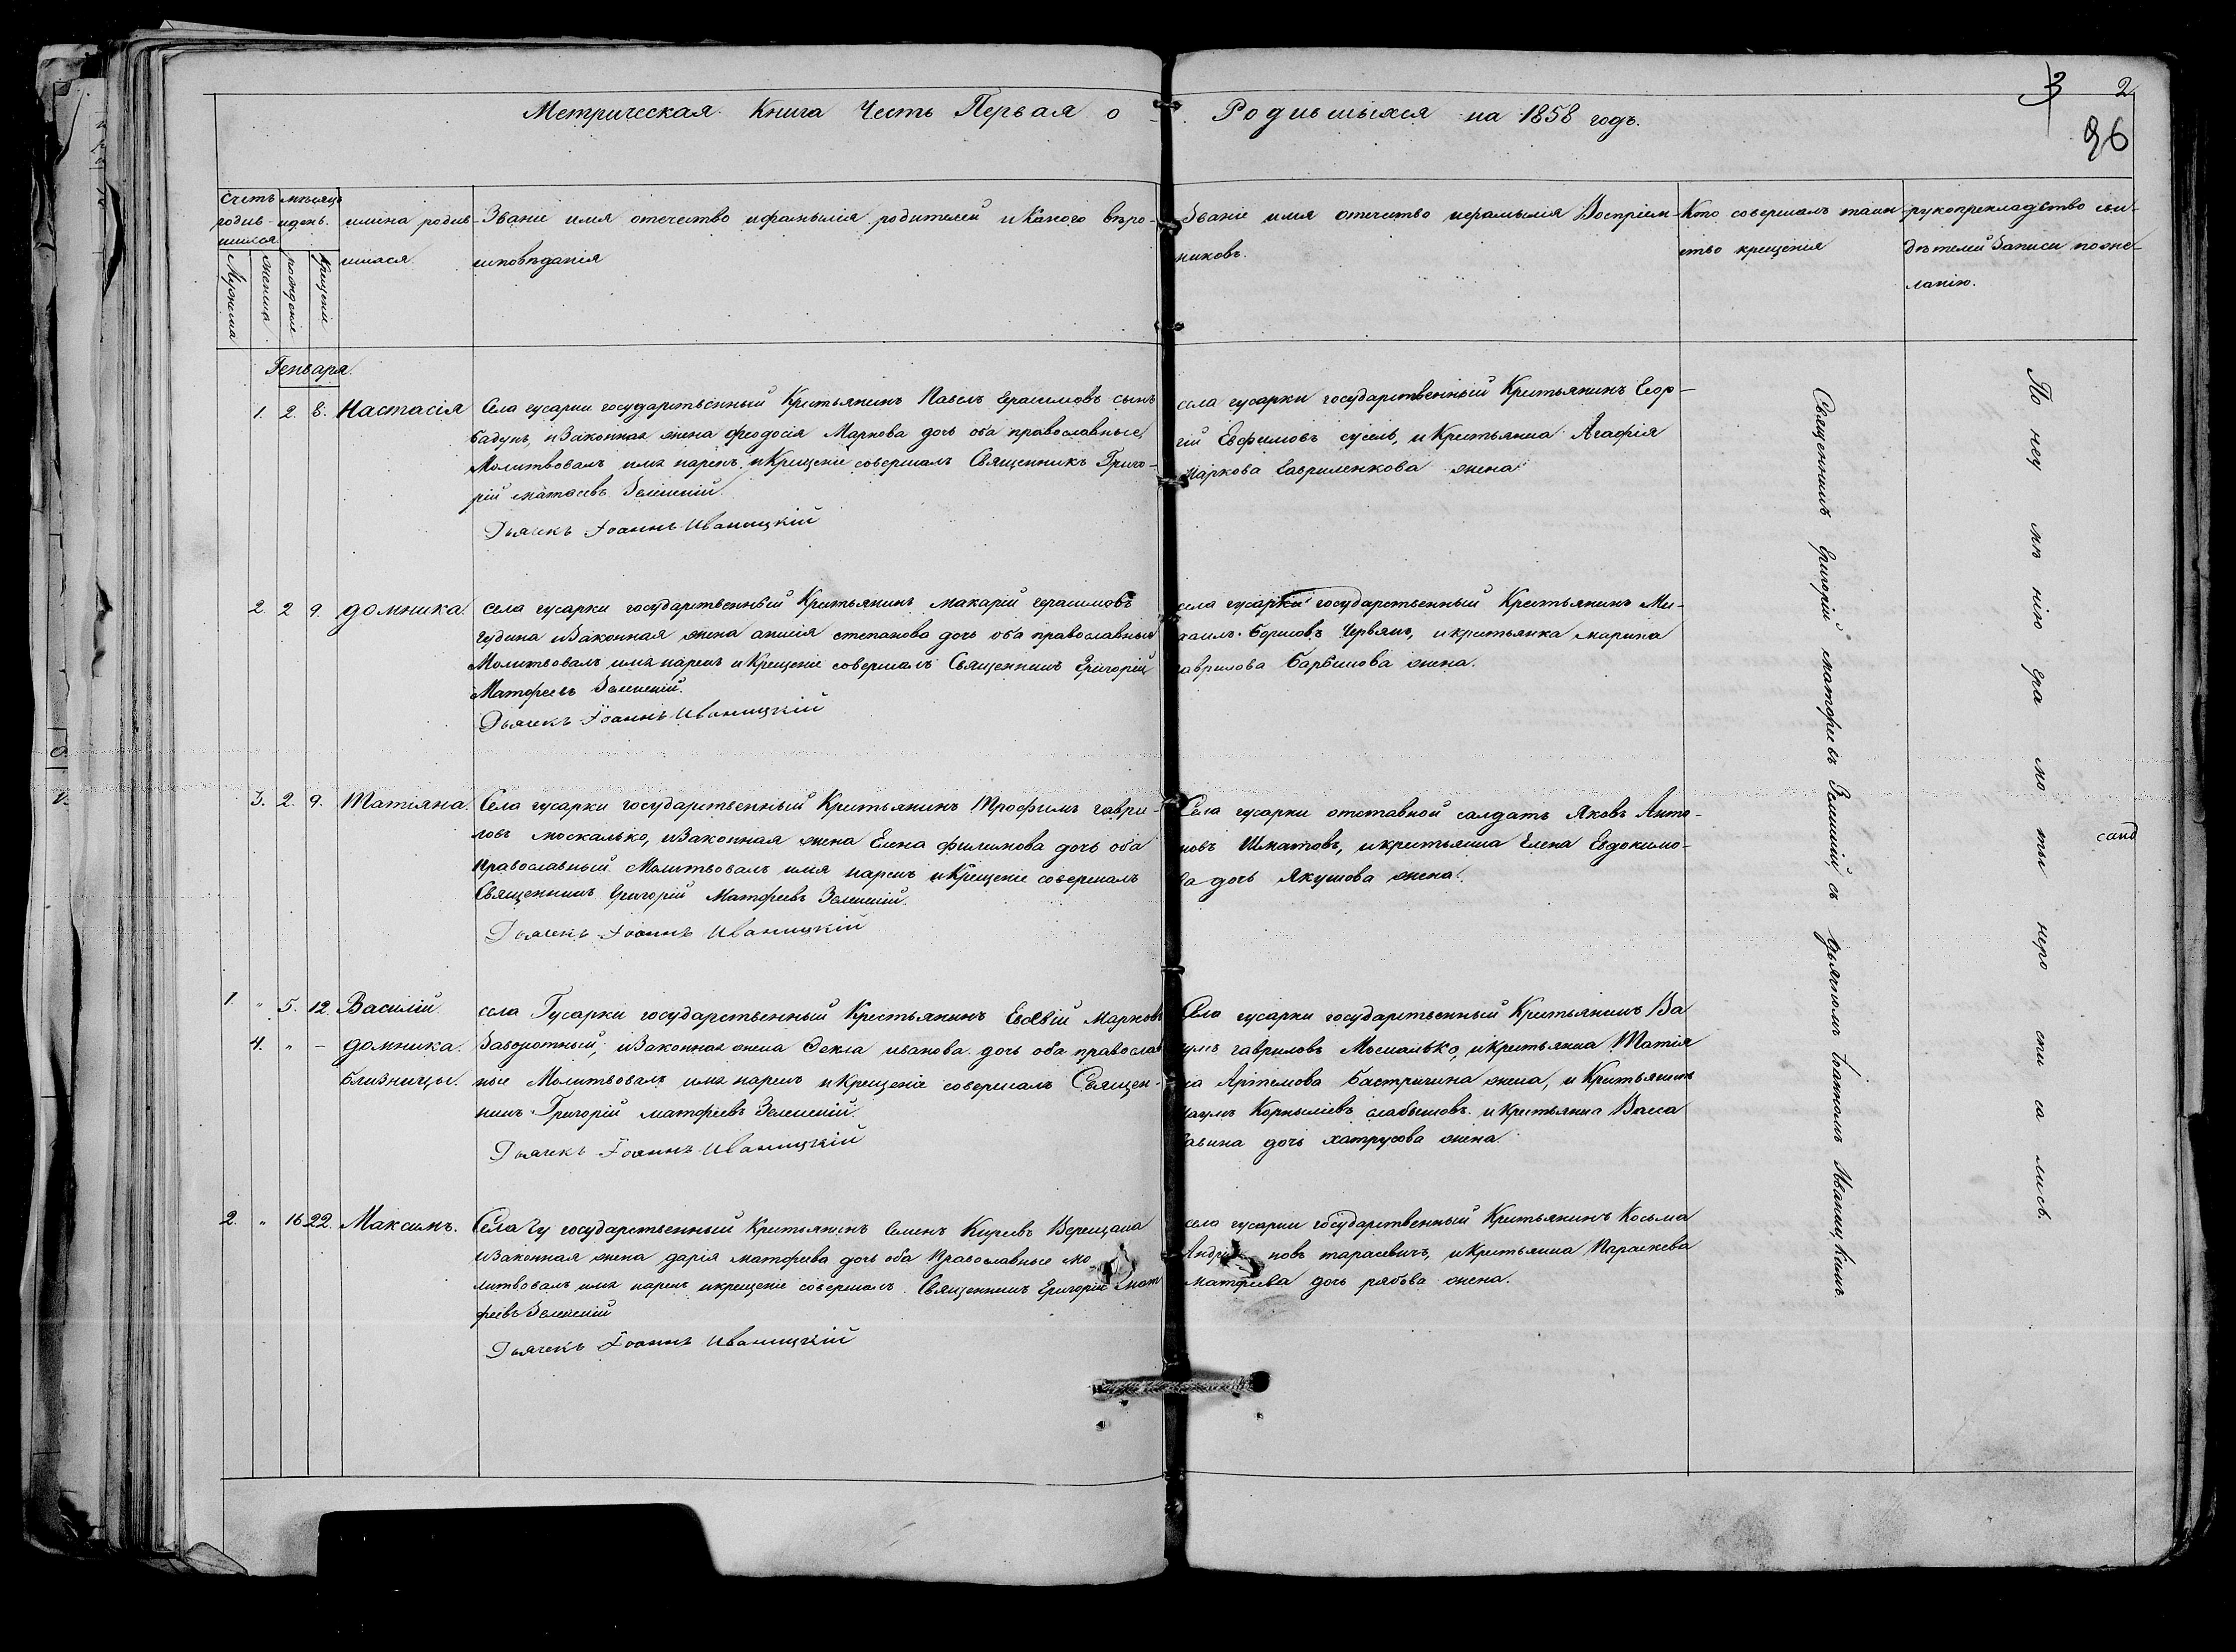 3 2
96
Метрическая Книга Честь Первая о Родившыхся на 1858 годъ.
Счетъ родив-шихся
Мужеска
женска
мѣсяцъ иденъ.
рожденіе
крещеніе
имена родив-
шихся.
Званіе имя отечество ифамылія родителей икакого вѣро-
исповѣданія
Званіе имя отечество ифамылія Воспріем-
никовъ.
Кто совершалъ таин-
ство крещенія
рукоприкладство сви-
дѣтелей Записи поже-
ланію.
Генваря.
1. 2. 8. Настасія
Села гусарки государственный Крестьянинъ Павелъ Герасимовъ сынъ
бадунъ, иЗаконная жена феодосія Маркова дочь оба православные,
Молитвовалъ имя нарекъ иКрещеніе совершалъ Священникъ Григо-
рій матфеевъ Зеленскій.
Дьячекъ Іоаннъ Иваницкій
села гусарки государственный Крестьянинъ Геор-
гій Евфимовъ сусель, и Крестьянка Агафія
Маркова Гавриленкова жена
2. 2 9. домника.
села гусарки государственный Крестьянинъ макарій герасимовъ
гудина иЗаконная жена анисія степанова дочь оба православные
Молитвовалъ имя нарекъ и Крещеніе совершалъ Священникъ Григорій
Матфеевъ Зеленскій.
Дьячекъ Іоаннъ Иваницкій
села гусарки государственный Крестьянинъ Ми-
хаилъ Борисовъ Червякъ, и крестьянка марина
гаврилова барбашова жена.
3. 2. 9. Татіяна.
Села гусарки государственный Крестьянинъ Трофимъ гаври-
ловъ москалько, иЗаконная жена Елена филимова дочь оба
Православный Молитвовалъ имя нарекъ иКрещеніе совершалъ
Священникъ Григорій Матфеевъ Зеленскій.
Дьячекъ Іоаннъ Иваницкій
Села гусарки отставной салдатъ Яковъ Анто-
новъ Шматовъ, икрестьянка Елена Евдокимо-
ва дочь Якушова жена.
1. " 5. 12. Василій
4. " - домника.
близницы.
села Гусарки государственный Крестьянинъ Евсевій Марковъ
Заворотный, иЗаконная жена Фекла иванова дочь оба православ
ные Молитвовалъ имя нарекъ иКрещеніе совершалъ Священ-
никъ Григорій матфеевъ Зеленскій
Дьячекъ Іоаннъ Иваницкій
Села гусарки государственный Крестьянинъ
гавриловъ Москалько, икрестьянка Татія
на Артемова бастричина жена, и Крестьянинъ
Наумъ Корныліевъ слабышовъ и крестьянка Васса
Савина дочь хатрусова жена
2. " 16 22. Максимъ.
Села гу государственный Крестьянинъ Семенъ Кирѣевъ Верещака
иЗаконная жена дарія матфеева дочь оба Православные мо
литвовалъ имя нарекъ икрещеніе совершалъ Священникъ Григорій мат
феевъ Зеленскій
Дьячекъ Іоаннъ Иваницкій
села гусарки государственный Крестьянинъ Косьма
новъ тарасевичъ, икрестьянка Параскева
матфеева дочь рябова жена.
Священникъ Григорій матфеевъ Зеленскій съ дьячкомъ Іоанномъ Иваницкимъ.
По неу мѣ нію гра мо ты неро спи са лись.